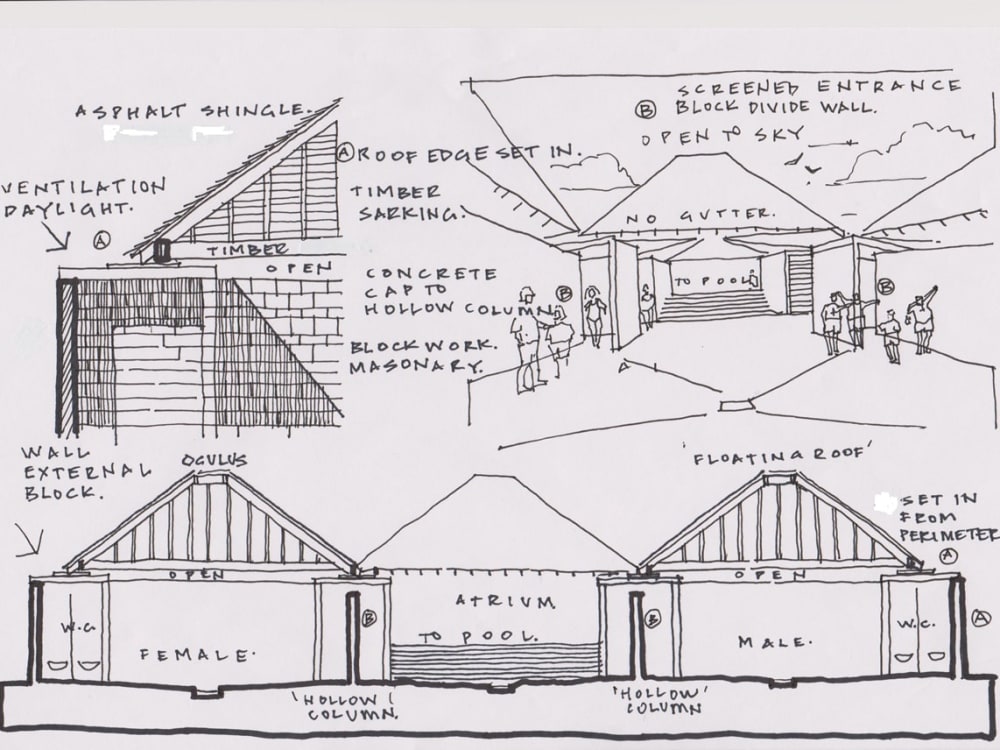 ASPHALT SHINGLE.
VENTILATION
DAYLIGHT.
A
A ROOF EDGE SET IN.
TIMBER
SARKING.
TIMBER
OPEN
CONCRETE
CAP TO
HOLLOW COLUMN
BLOCK WORK.
MASONARY.
SCREENED ENTRANCE
B BLOCK DIVIDE WALL.
OPEN TO SKY
NO GUTTER.
TO POOL
B
B
A
WALL
EXTERNAL
BLOCK.
OCULUS
'FLOATING ROOF'
SET IN
FROM
PERIMETER
A
OPEN
OPEN
W.C.
FEMALE.
B
ATRIUM
TO POOL.
B
MALE.
W.C.
A
'HOLLOW'
COLUMN.
'HOLLOW'
COLUMN